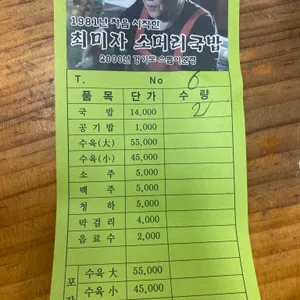 1981년 처음 시작한
최미자 소머리국밥
2000년 경기도 으뜸이선정
T. No 6
품목 단가 수량
국밥 14,000 2
공기밥 1,000
수육(大) 55,000
수육(小) 45,000
소주 5,000
맥주 5,000
청하 5,000
막걸리 4,000
음료수 2,000
포
수육 大 55,000
수육 小 45,000